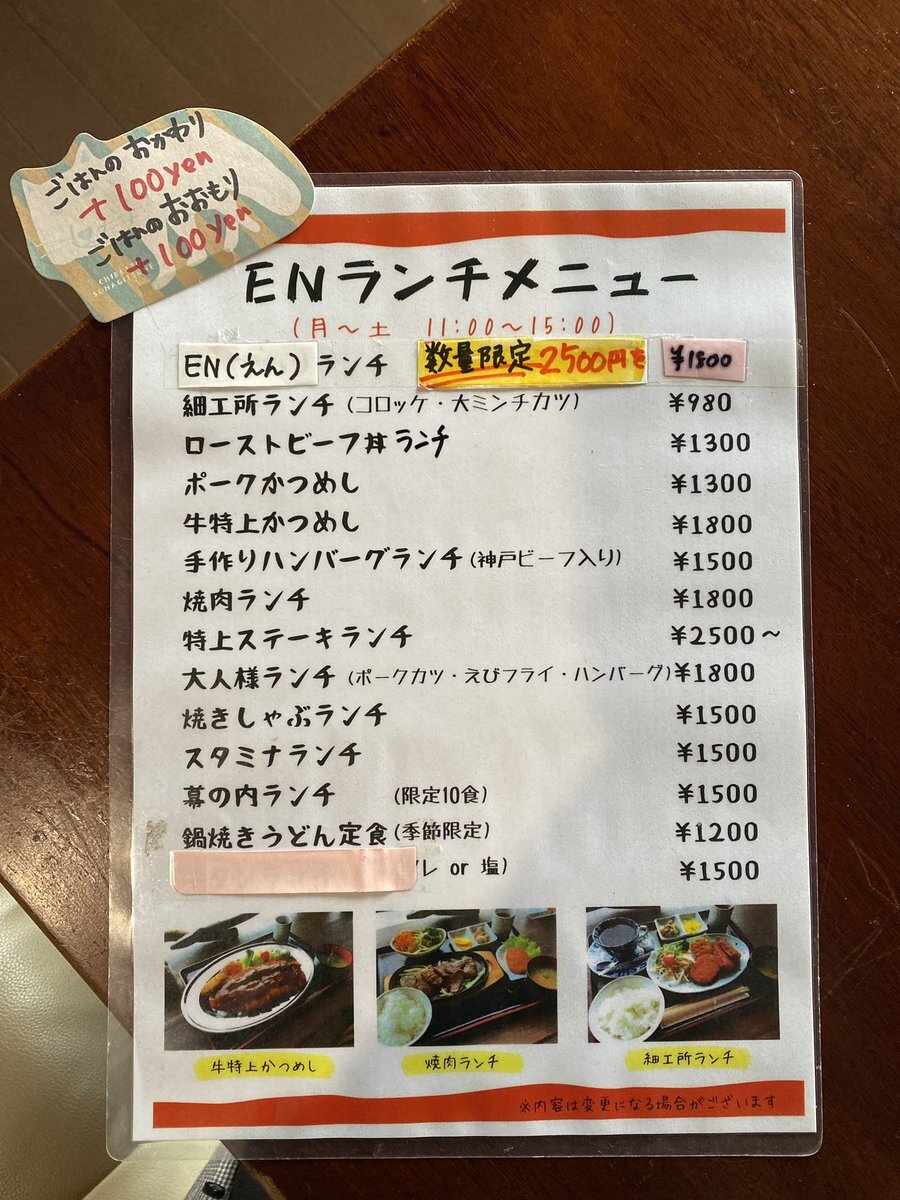 ごはんのおかわり
+100yen
ごはんのおおもり
+100yen
ENランチメニュー
(月～土 11:00～15:00)
EN(えん)ランチ 数量限定 2500円を ¥1800
細工所ランチ(コロッケ・大ミンチカツ) ¥980
ローストビーフ丼ランチ ¥1300
ポークかつめし ¥1300
牛特上かつめし ¥1800
手作りハンバーグランチ(神戸ビーフ入り) ¥1500
焼肉ランチ ¥1800
特上ステーキランチ ¥2500～
大人様ランチ(ポークカツ・えびフライ・ハンバーグ) ¥1800
焼きしゃぶランチ ¥1500
スタミナランチ ¥1500
幕の内ランチ (限定10食) ¥1500
鍋焼きうどん定食(季節限定) ¥1200
レ or 塩) ¥1500
牛特上かつめし 焼肉ランチ 細工所ランチ
※内容は変更になる場合がございます